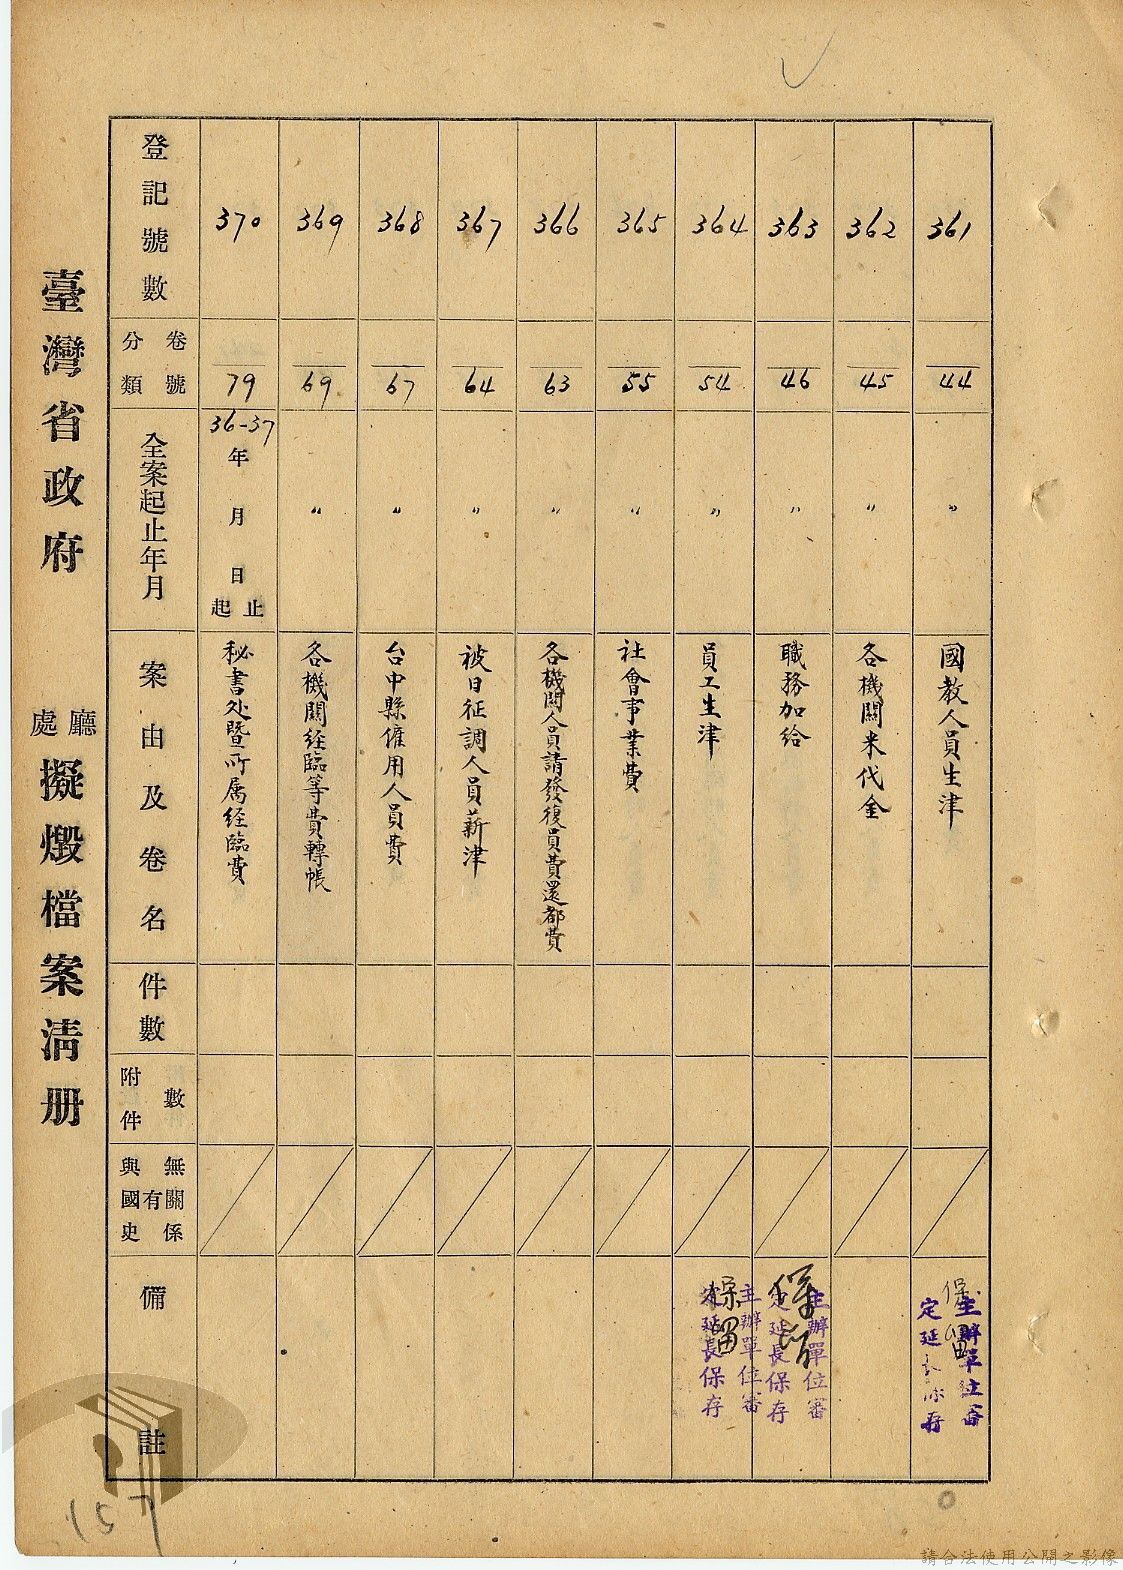 臺灣省政府 廳處 擬燬檔案清册
登記號數
卷號
分類
全案起止年月
案由及卷名
件數
附件數
與國史有無關係
備註
361
44
〃
國教人員生津
保留
主辦單位審
定延 存
362
45
〃
各機關米代金
363
46
〃
職務加給
主辦單位審
定延長保存
364
54
〃
員工生津
保留
主辦單位審
定延長保存
365
55
〃
社會事業費
366
63
〃
各機關人員請發復員費還都費
367
64
〃
被日征調人員薪津
368
67
〃
台中縣僱用人員費
369
69
〃
各機關経臨等費轉帳
370
79
36-37
年
月
日
起止
秘書处暨所属经臨費
157
請合法使用公開之影像